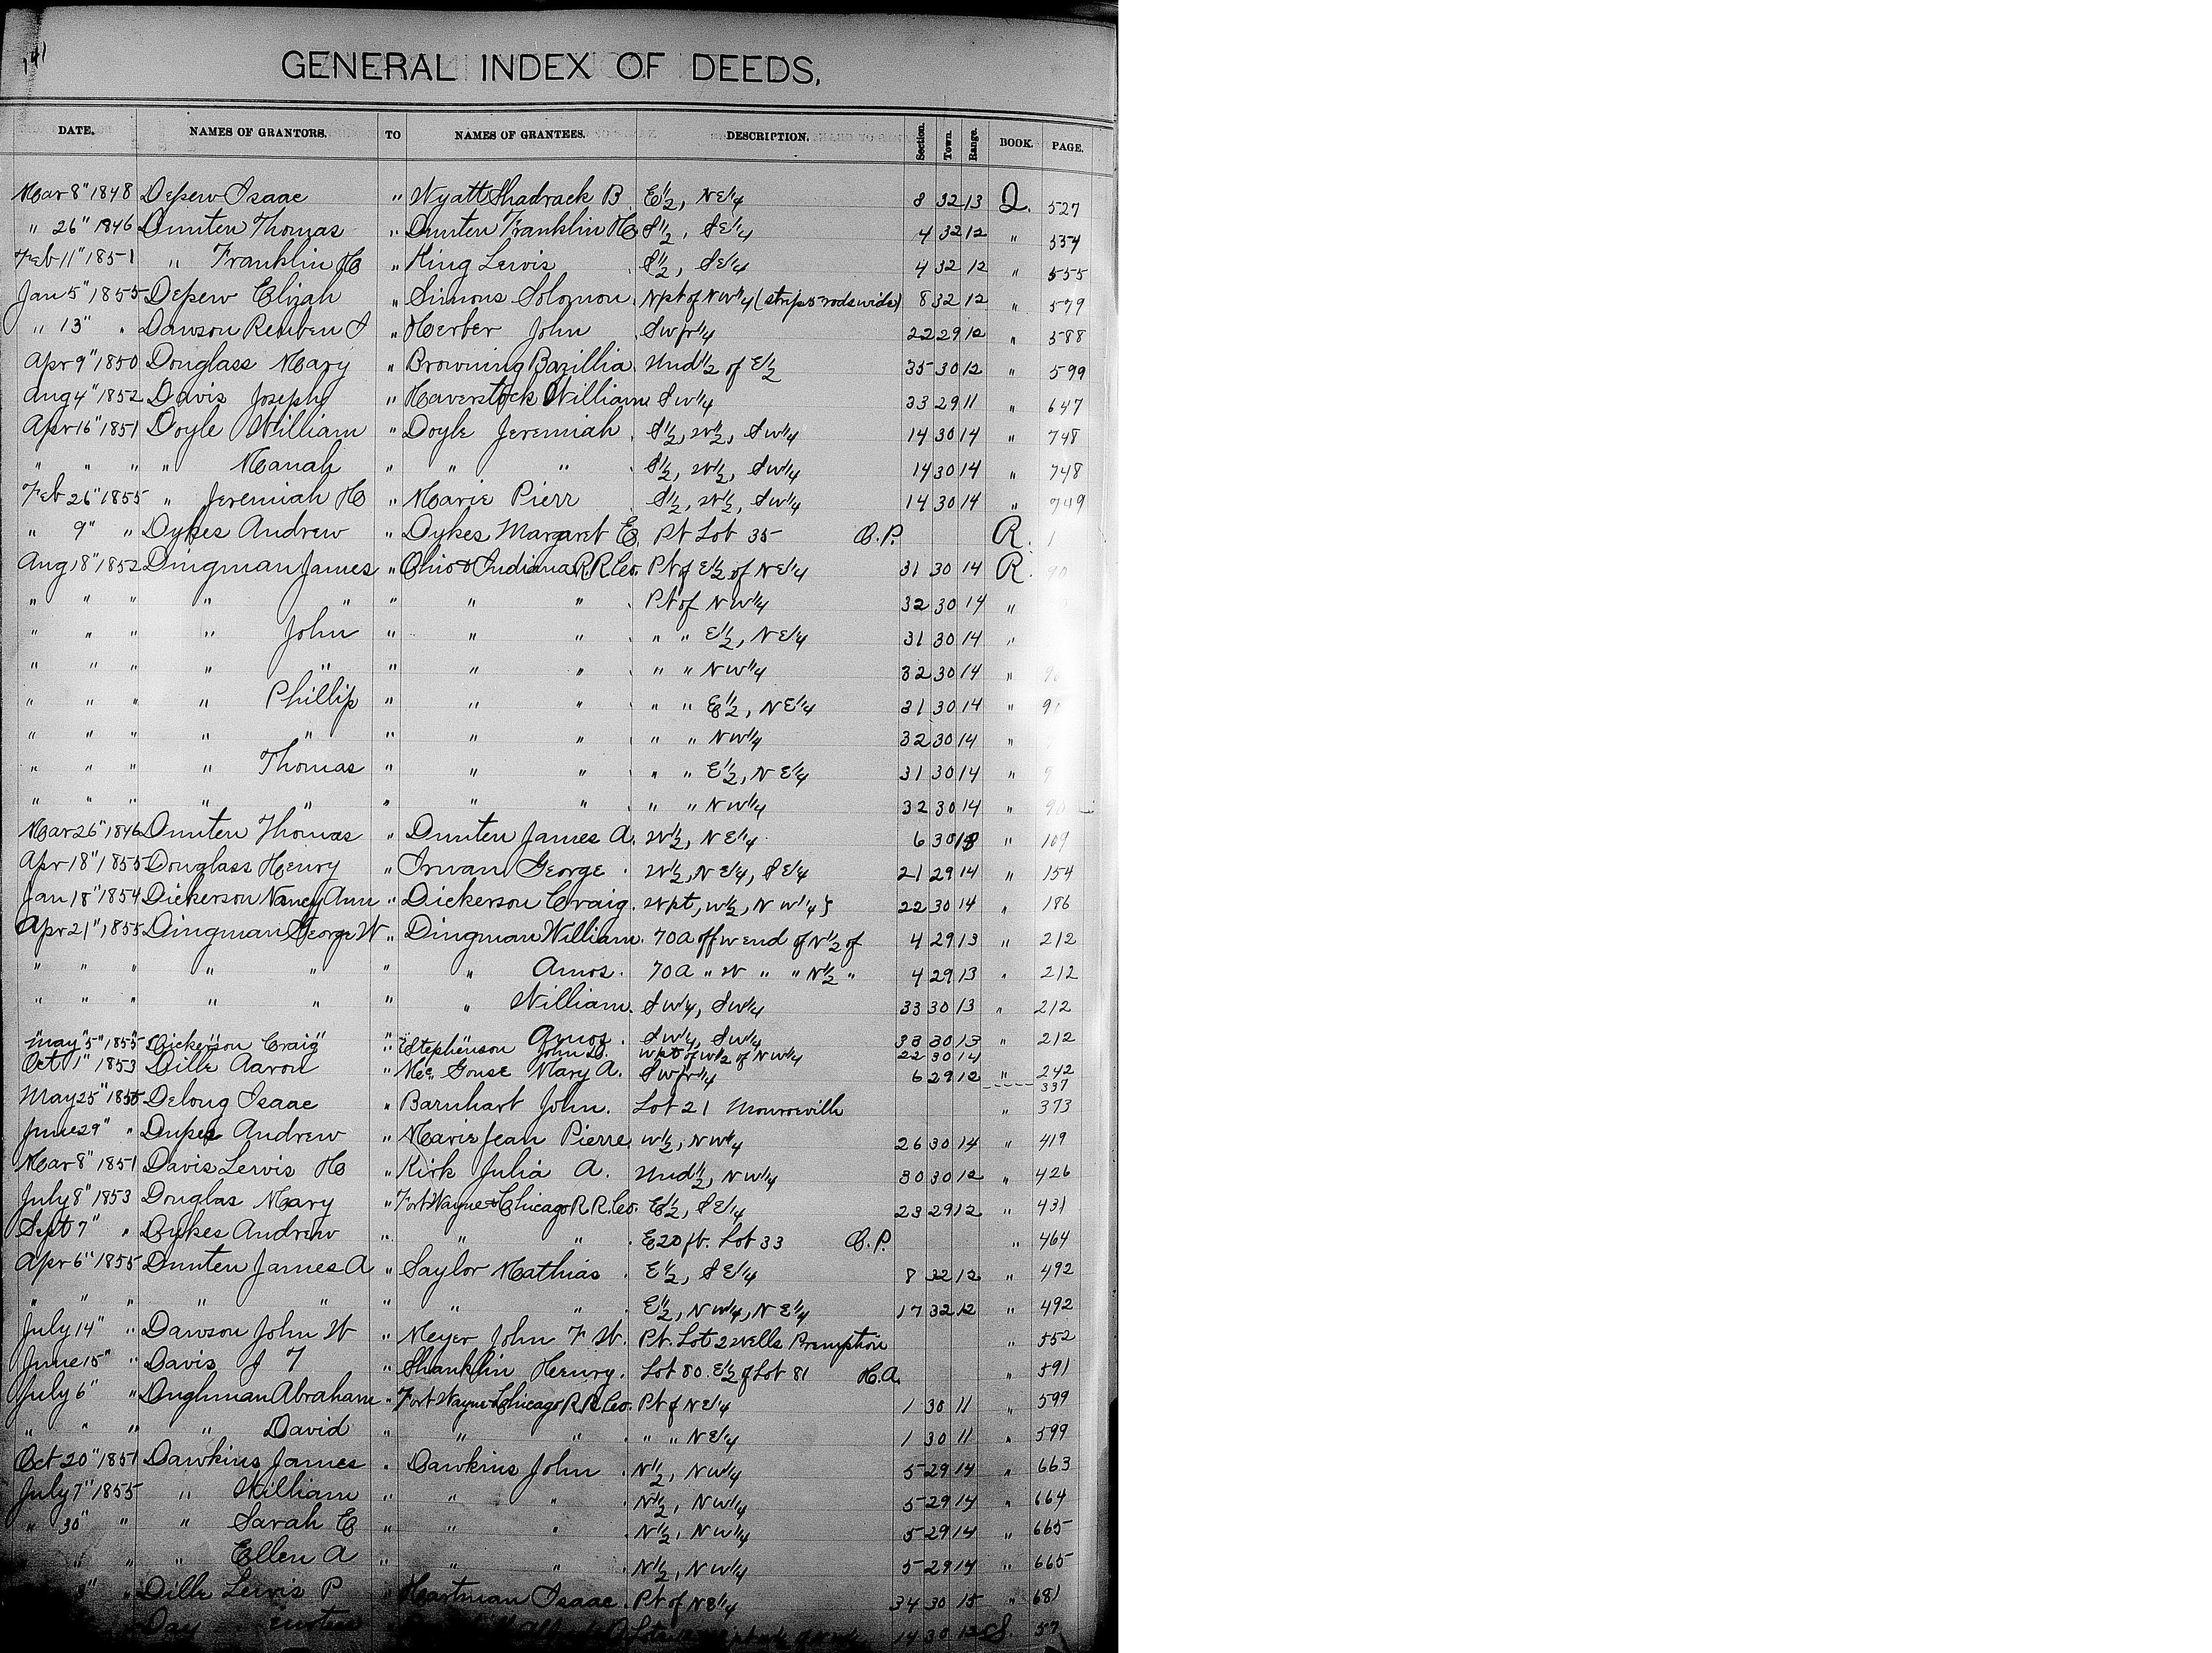 GENERAL INDEX OF DEEDS.
DATE. NAMES OF GRANTORS. TO NAMES OF GRANTEES. DESCRIPTION. Section. Town. Range. BOOK. PAGE.
Mar 8" 1848 Depew Isaac " Wyatt Shadrack B. E 1/2, NE 1/4 8 32 13 Q. 527
" 26" 1846 Dunten Thomas " Dunten Franklin H. S 1/2, SE 1/4 4 32 12 " 554
Feb 11" 1851 " Franklin H " King Lewis S 1/2, SE 1/4 4 32 12 " 555
Jan 5" 1855 Depew Elijah " Simons Solomon. N pt of NW 1/4 (strip 5 rods wide) 8 32 12 " 579
" 13" " Dawson Reuben J " Herber John SW fr 1/4 22 29 12 " 588
Apr 9" 1850 Douglass Mary " Browning Bazillia. Und 1/2 of E 1/2 35 30 12 " 599
Aug 4" 1852 Davis Joseph " Haverstock William SW 1/4 33 29 11 " 647
Apr 16" 1851 Doyle William " Doyle Jeremiah. S 1/2, W 1/2, SW 1/4 14 30 14 " 748
" " " " Mariah " " " S 1/2, W 1/2, SW 1/4 14 30 14 " 748
Feb 26" 1855 " Jeremiah H " Marie Pierr S 1/2, W 1/2, SW 1/4 14 30 14 " 749
" 9" " Dykes Andrew " Dykes Margaret E. Pt Lot 35 O.P. R. 1
Aug 18" 1852 Dingman James " Ohio & Indiana R R Co. Pt of E 1/2 of NE 1/4 31 30 14 R. 90
" " " " " " " " Pt of NW 1/4 32 30 14 "
" " " " John " " " " " E 1/2, NE 1/4 31 30 14 "
" " " " " " " " " " NW 1/4 32 30 14 "
" " " " Phillip " " " " " E 1/2, NE 1/4 31 30 14 "
" " " " " " " " " " NW 1/4 32 30 14 "
" " " " Thomas " " " " " E 1/2, NE 1/4 31 30 14 "
" " " " " " " " " " NW 1/4 32 30 14 " 90
Mar 26" 1846 Dunten Thomas " Dunten James A. W 1/2, NE 1/4 6 30 13 " 109
Apr 18" 1855 Douglass Henry " Irwan George. W 1/2, NE 1/4, SE 1/4 21 29 14 " 154
Jan 18" 1854 Dickerson Nancy Ann " Dickerson Craig. W pt, W 1/2, NW 1/4 } 22 30 14 " 186
Apr 21" 1855 Dingman George W " Dingman William. 70 A off W end of N 1/2 of 4 29 13 " 212
" " " " " " " Amos. 70 A " W " " N 1/2 " 4 29 13 " 212
" " " " " " " William. SW 1/4, SW 1/4 33 30 13 " 212
" " " " " " " Amos. SW 1/4, SW 1/4 33 30 13 " 212
May 5" 1855 Dickerson Craig " Stephenson John D. W pt of W 1/2 of NW 1/4 22 30 14 " 242
Oct 1" 1853 Dille Aaron " Mc Gouse Mary A. SW fr 1/4 6 29 12 " 337
May 25" 1855 Delong Isaac " Barnhart John. Lot 21 Monroeville " 373
June 29" " Dupes Andrew " Marie Jean Pierre W 1/2, NW 1/4 26 30 14 " 419
Mar 8" 1851 Davis Lewis H " Kirk Julia A. Und 1/2, NW 1/4 30 30 12 " 426
July 8" 1853 Douglas Mary " Fort Wayne & Chicago R R. Co. E 1/2, SE 1/4 23 29 12 " 431
Sept 7" " Dykes Andrew " " " E 20 ft. Lot 33 O.P. " 464
Apr 6" 1855 Dunten James A " Saylor Mathias. E 1/2, SE 1/4 8 32 12 " 492
" " " " " " " " E 1/2, NW 1/4, NE 1/4 17 32 12 " 492
July 14" " Dawson John W " Meyer John F W. Pt. Lot 2 Wells Premption " 552
June 15" " Davis J T " Shanklin Henry. Lot 80. E 1/2 of Lot 81 H.A. " 591
July 6" " Dughman Abraham " Fort Wayne & Chicago R R Co. Pt of NE 1/4 1 30 11 " 599
" " " " David " " " " " NE 1/4 1 30 11 " 599
Oct 20" 1851 Dawkins James " Dawkins John. N 1/2, NW 1/4 5 29 14 " 663
July 7" 1855 " William " " " N 1/2, NW 1/4 5 29 14 " 664
" 30" " " Sarah E " " " N 1/2, NW 1/4 5 29 14 " 665
" " " Ellen A " " " N 1/2, NW 1/4 5 29 14 " 665
" Dille Lewis P " Hartman Isaac. Pt of NE 1/4 34 30 15 " 681
Day 14 30 12 S. 57